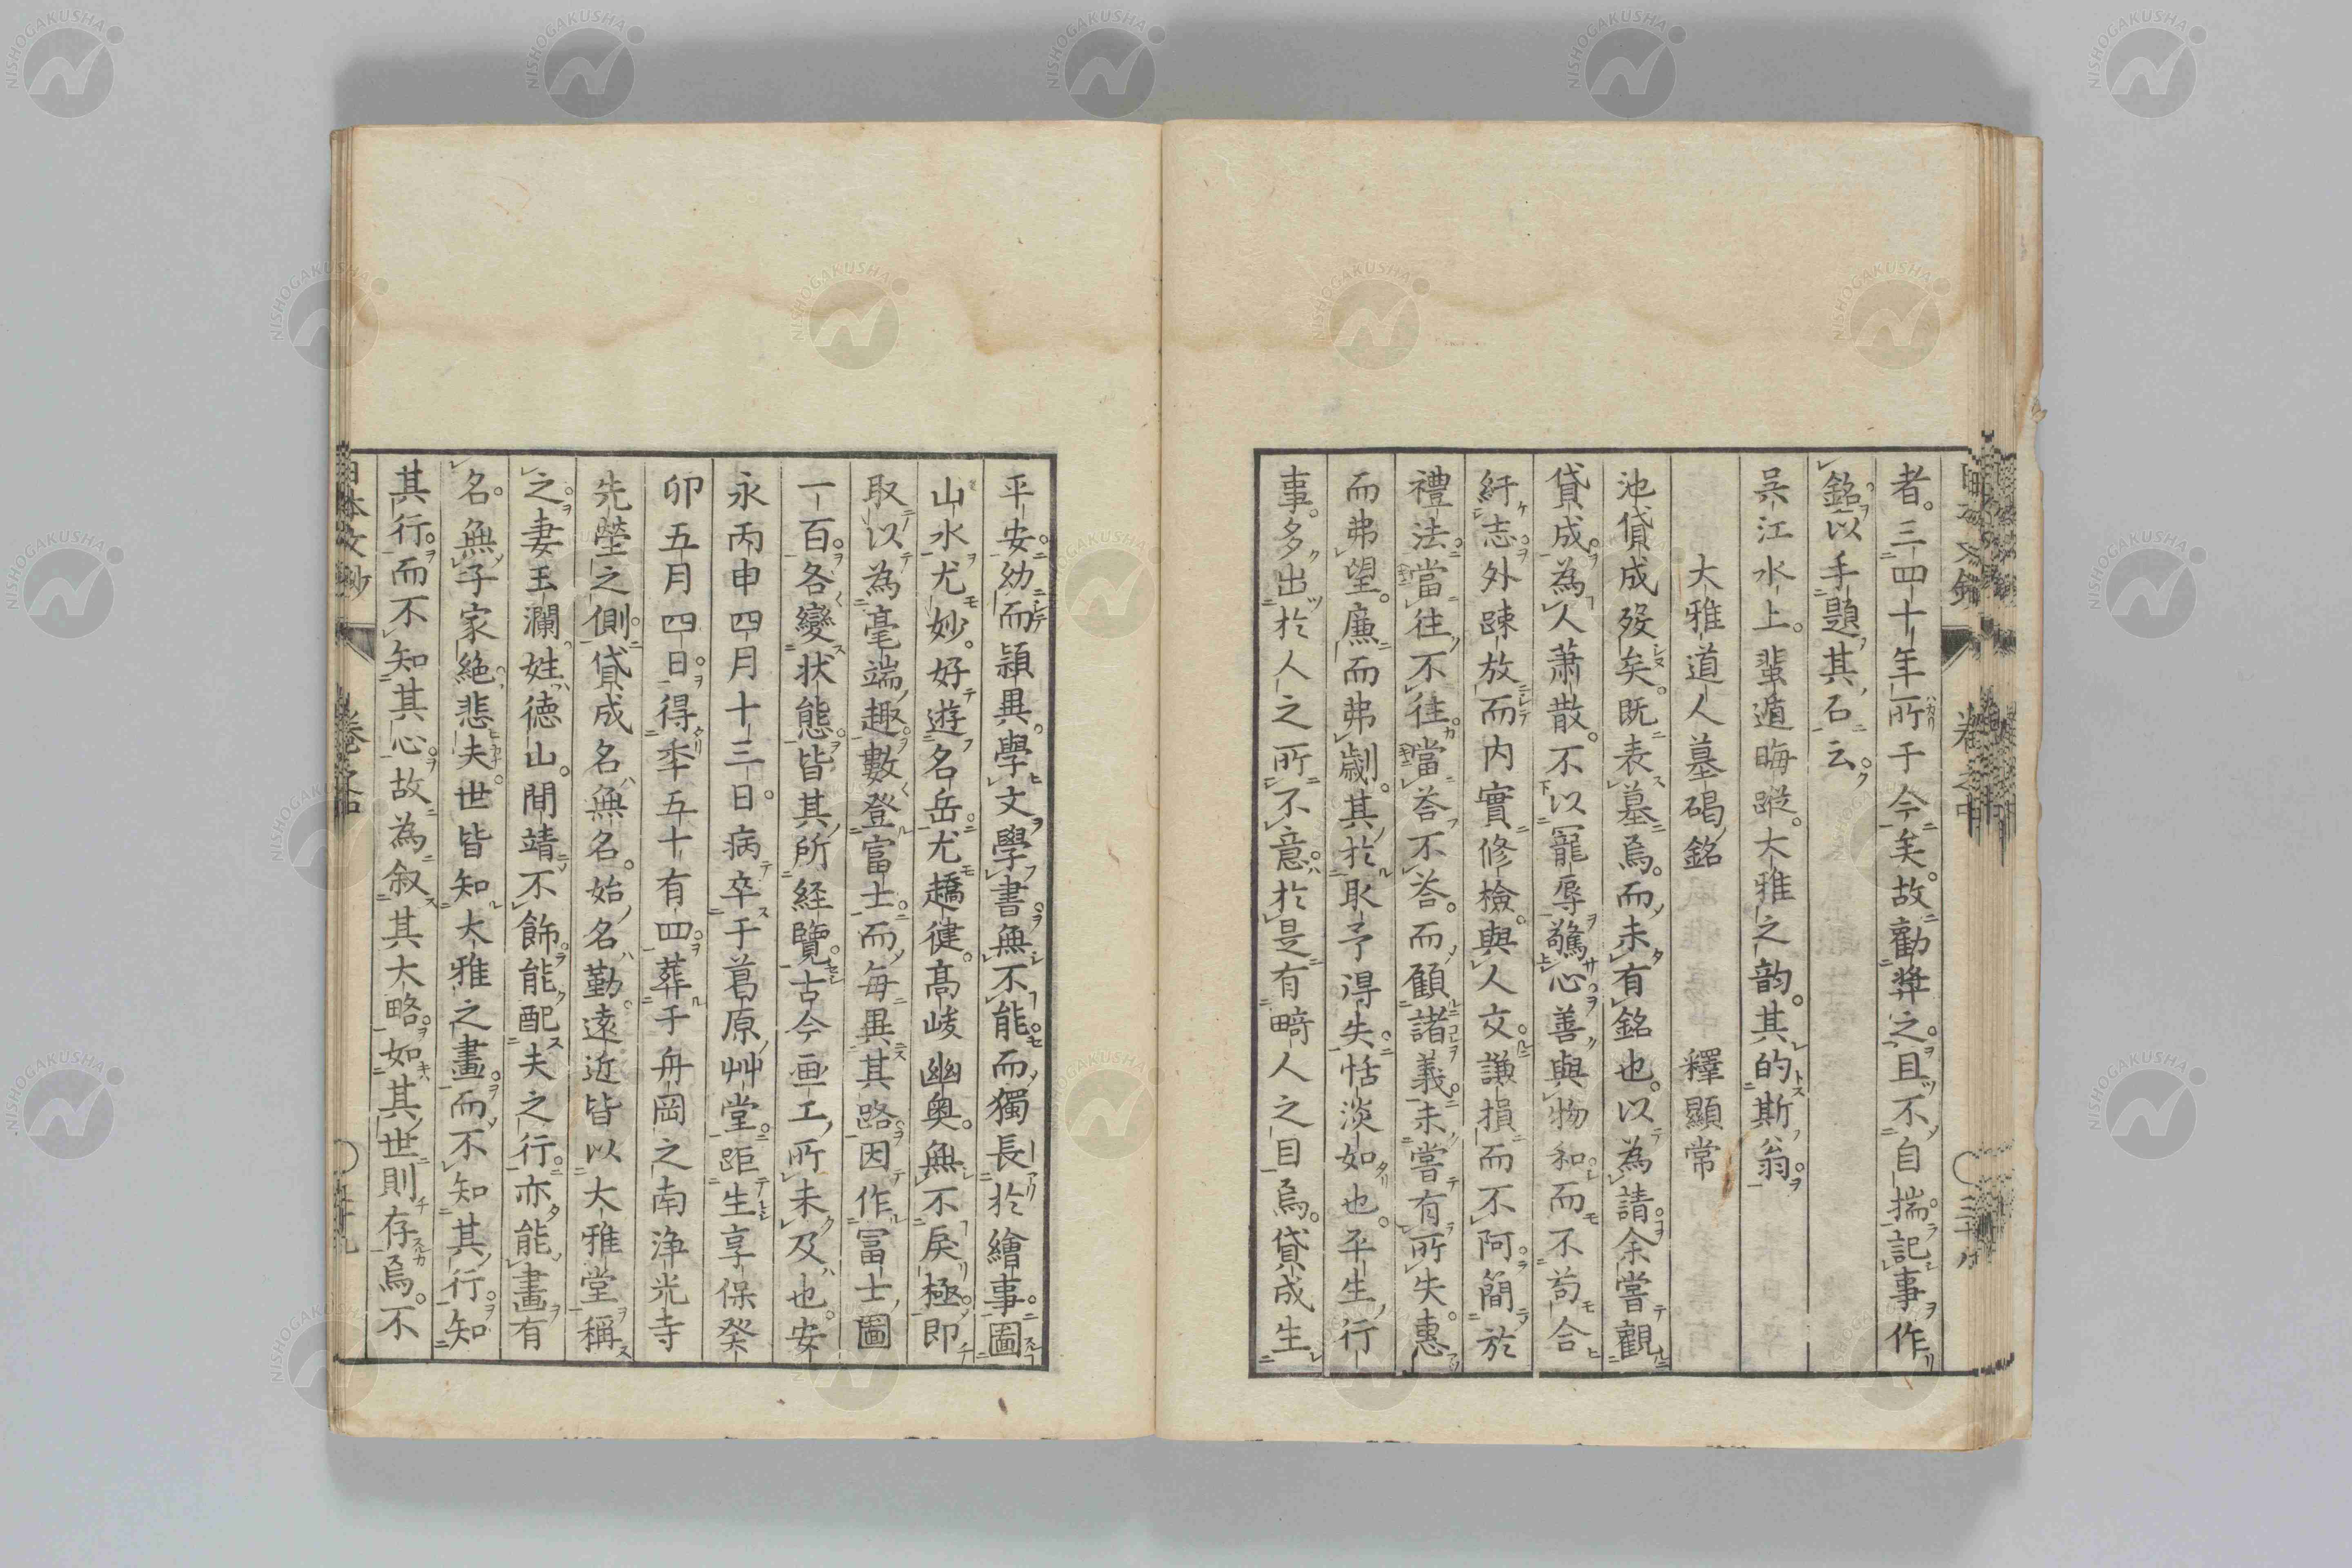 者。三四十年所于今矣。故勸奨之。且不自揣記事作
銘。以手題其石云。
吳江水上。蜚遁晦蹤。大雅之韵。其的斯翁。
大雅道人墓碣銘　釋顯常
池貸成歿矣。既表墓焉。而未有銘也。以為請。余嘗觀
貸成。為人蕭散。不以寵辱驚心。善與物和而不苟合
紆志。外踈放而内實修檢。與人交。謙損而不阿。簡於
禮法。當往不往。當荅不荅。而顧諸義。未嘗有所失。惠
而弗望。廉而弗劌。其於取予得失。恬淡如也。平生行
事。多出於人之所不意。於是有畸人之目焉。貸成生
平安。幼而穎異。學文學書。無不能。而獨長於繪事。圖
山水尤妙。好遊名岳。尤趫健。高峻幽奥。無不戻極。即
取以為毫端趣。數登富士。而毎異其路。因作冨士圖
一百。各變状態。皆其所経覽。古今画工所未及也。安
永丙申四月十三日。病卒于葛原艸堂。距生享保癸
卯五月四日。得年五十有四。葬于舟岡之南浄光寺
先塋之側。貸成名無名。始名勤。遠近皆以大雅堂稱
之。妻玉瀾。姓徳山。間靖不飾。能配夫之行。亦能畫有
名。無子家絶。悲夫。世皆知大雅之畫。而不知其行。知
其行。而不知其心。故為叙其大略。如其世則存焉。不
日本文鈔